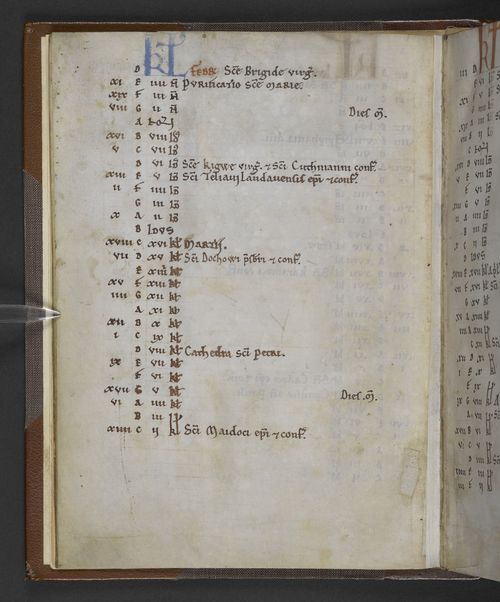 D KL FEBR Sc̄e Brigide virḡ.
xi E iiii N̄ Purificatio sc̄e marie.
xix F iii N̄
viii G ii N̄ Dies m̄.
A NON
xvi B viii id
v C vii id
D vi id Sc̄e Kigwe virḡ. ⁊ Sc̄i Cuthmanni conf̄.
xiii E v id Sc̄i Teliaui Landauensis ep̄i ⁊ conf̄.
ii F iiii id
G iii id
x A ii id
B Idus
xviii C xvi kł MARTII.
vii D xv kł Sc̄i Dochowi p̄sbri ⁊ conf̄.
E xiiii kł
xv F xiii kł
iiii G xii kł
A xi kł
xii B x kł
i C ix kł
D viii kł Cathedra sc̄i petri.
ix E vii kł
F vi kł
xvii G v kł Dies m̄.
vi A iiii kł
B iii kł
xiiii C ij kł Sc̄i Maidoci ep̄i ⁊ conf̄.